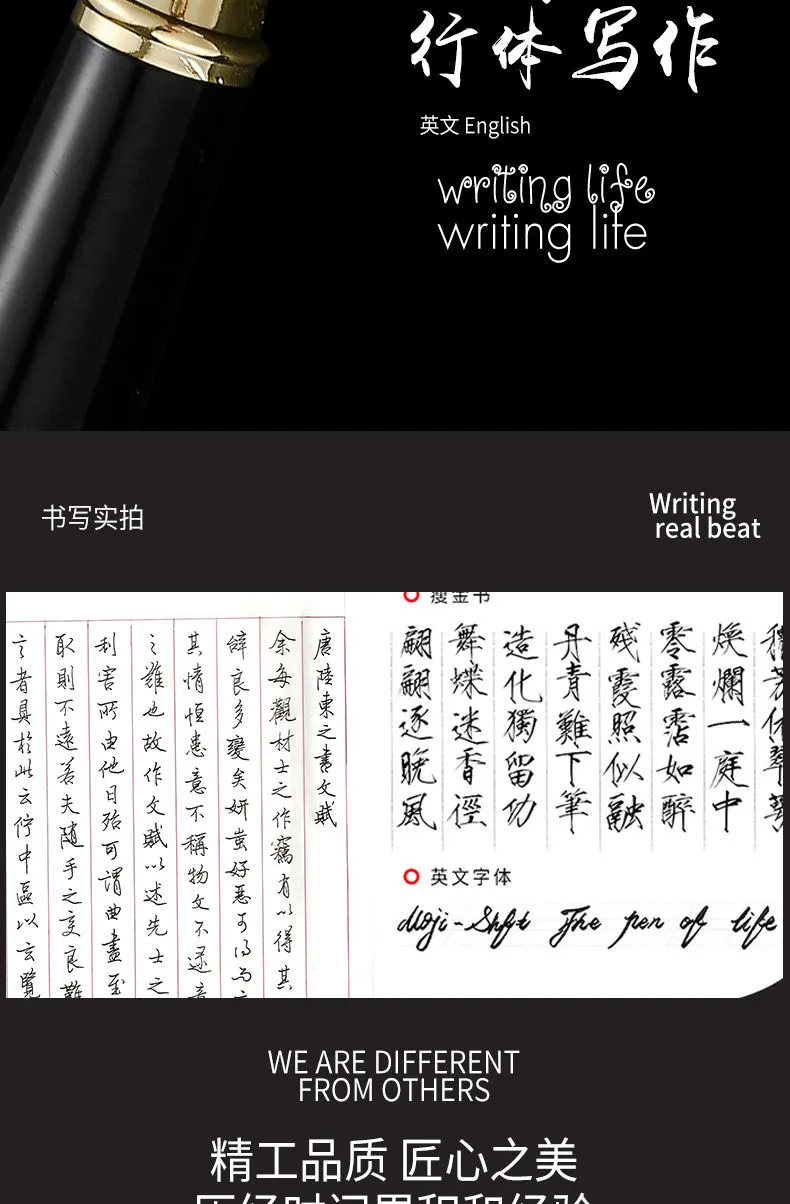 行体写作
英文 English
writing life
writing life
书写实拍
Writing
real beat
唐陸柬之書文賦
余每觀材士之作竊有以得其
辭良多變矣妍蚩好惡可得而
其情恒患意不稱物文不逮意
之難也故作文賦以述先士之
利害所由他日殆可謂曲盡至
取則不遠若夫隨手之变良難
言者具於此云佇中區以玄覽
瘦金书
芳依翠萼
煥爛一庭中
零露霑如醉
殘霞照似融
丹青難下筆
造化獨留功
舞蝶迷香徑
翩翩逐晚風
英文字体
The pen of life
WE ARE DIFFERENT
FROM OTHERS
精工品质 匠心之美